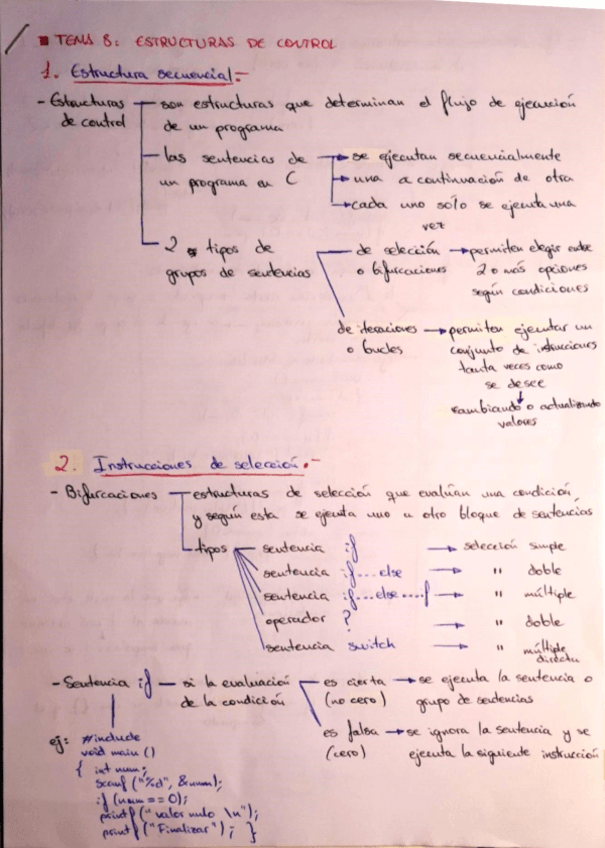 TEMA 8: ESTRUCTURAS DE CONTROL
1. Estructura secuencial.-
- Estructuras de control
son estructuras que determinan el flujo de ejecución
de un programa
las sentencias de
un programa en C
se ejecutan secuencialmente
una a continuación de otra
cada uno sólo se ejecuta una
vez
2 tipos de
grupos de sentencias
de selección
o bifurcaciones
permiten elegir entre
2 o más opciones
según condiciones
de iteraciones
o bucles
permiten ejecutar un
conjunto de instrucciones
tanta veces como
se desee
cambiando o actualizando
valores
2. Instrucciones de selección.-
- Bifurcaciones
estructuras de selección que evalúan una condición,
y según esta se ejecuta uno u otro bloque de sentencias
tipos
sentencia if → selección simple
sentencia if...else → " doble
sentencia if...else...if → " múltiple
operador ? → " doble
sentencia switch → " múltiple
directa
- Sentencia if — si la evaluación
de la condición
es cierta → se ejecuta la sentencia o
(no cero) grupo de sentencias
es falsa → se ignora la sentencia y se
(cero) ejecuta la siguiente instrucción
ej: #include
void main ()
{ int num;
scanf ("%d", &num);
if (num == 0);
printf ("valor nulo \n");
printf ("Finalizar"); }